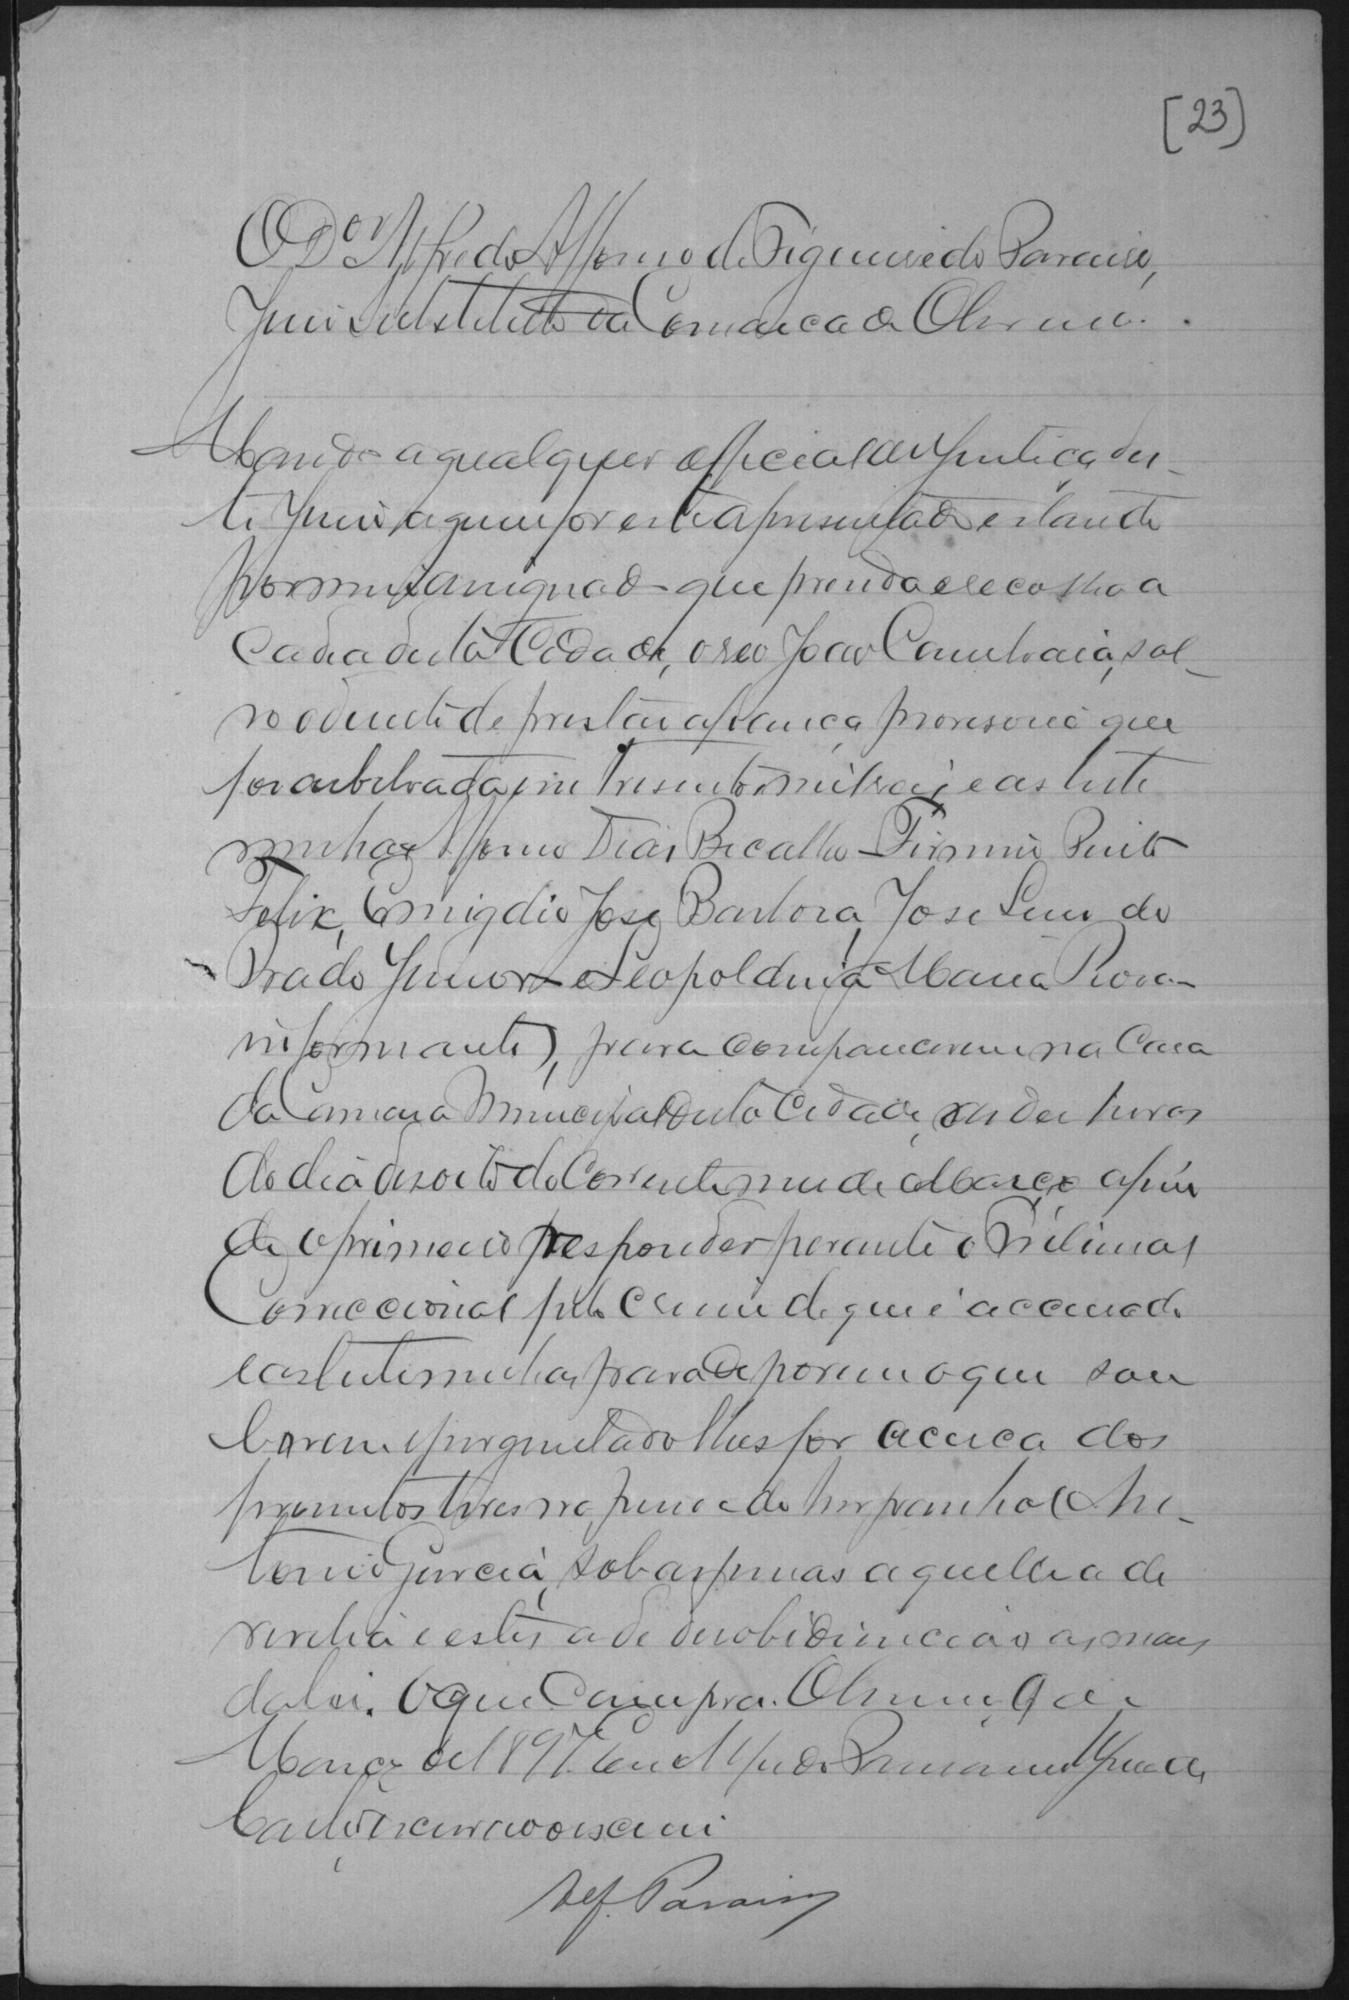 [23]
O Dor Alfredo Affonso de Figueiredo Paraiso,
Juiz Substituto da Comarca de Oliveira.
Mando a qualquer official de Justiça des-
te Juizo a quem for este apresentado estando
por mim assignado que prenda e recolha a
Cadea desta Cidade, o reo João Cambraia, sal-
vo o direito de prestar a fiança provisoria que
foi arbitrada em tresentos mil reis e as teste
munhas Affonso Dias Bicalho Firmino Pinto
Felix, Emigdio José Barbosa, José Luis do
Prado Junior e Leopoldina Maria
informante), para comparecerem na Casa
da Camara Municipal desta Cidade, as dez horas
do dia desoito do Corrente mez de Março afim
de o primeiro responder perante o Tribunal
Correccional pelo Crime de que é accusado
e as testemunhas para deporem o que sou
berem e perguntado lhes for acerca dos
ferimentos leves na pessoa do hespanhol An-
tonio Garcia, sob as penas aquelle a de
revelia e estes a de desobediencia e as mais
da lei. O que Cumpra. Oliveira, 9 de
Março de 1897. Eu
escrivão o escrevi
Alf. Paraiso